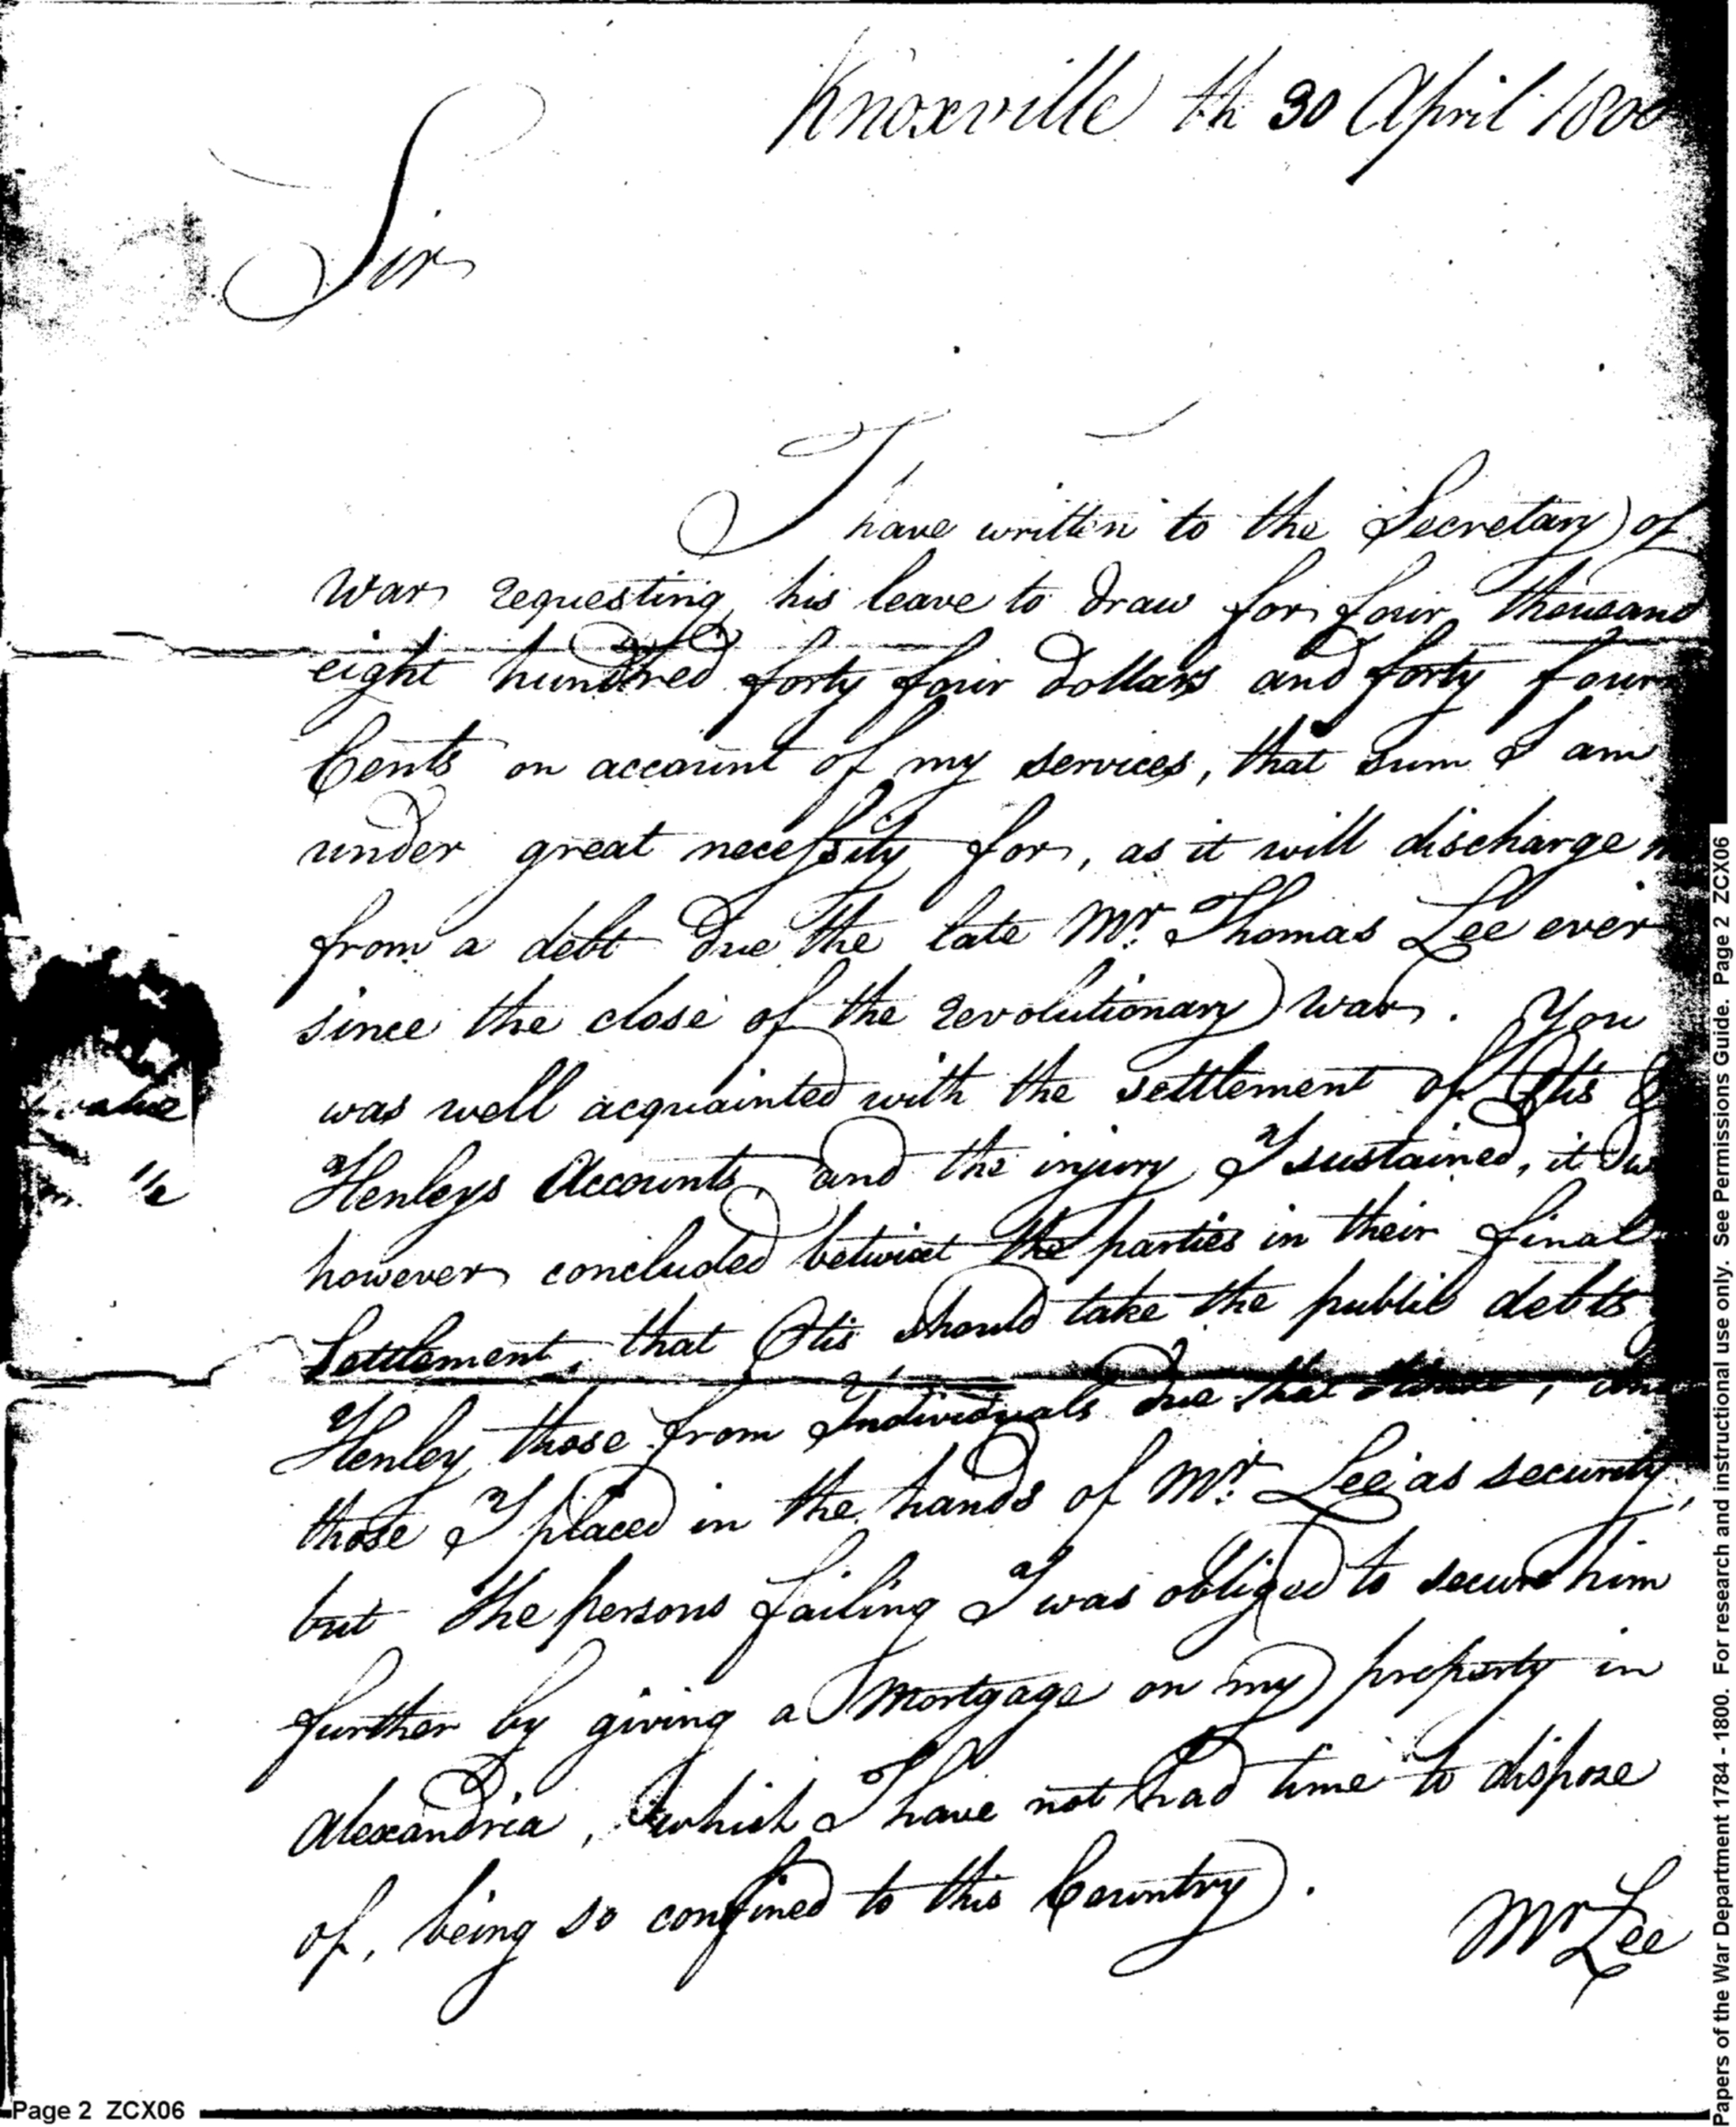 Knoxville th 30 April 1800
Sir
I have written to the Secretary of
War requesting his leave to draw for four Thousand
eight hundred forty four dollars and forty four
Cents on account of my services, that sum I am
under great necessity for, as it will discharge
from a debt due the late Mr. Thomas Lee ever
since the close of the revolutionary war. You
was well acquainted with the settlement of Otis &
Henleys Accounts, and the injury I sustained, it
however concluded betwixt the parties in their final
Settlement, that Otis should take the public debts
Henley those from Individuals due that
those I placed in the hands of Mr. Lee as security,
but the persons failing I was obliged to secure him
further by giving a Mortgage on my property in
Alexandria, which I have not had time to dispose
of, being so confined to this Country.
Mr Lee
value
Page 2 ZCX06
Papers of the War Department 1784 - 1800. For research and instructional use only. See Permissions Guide. Page 2 ZCX06